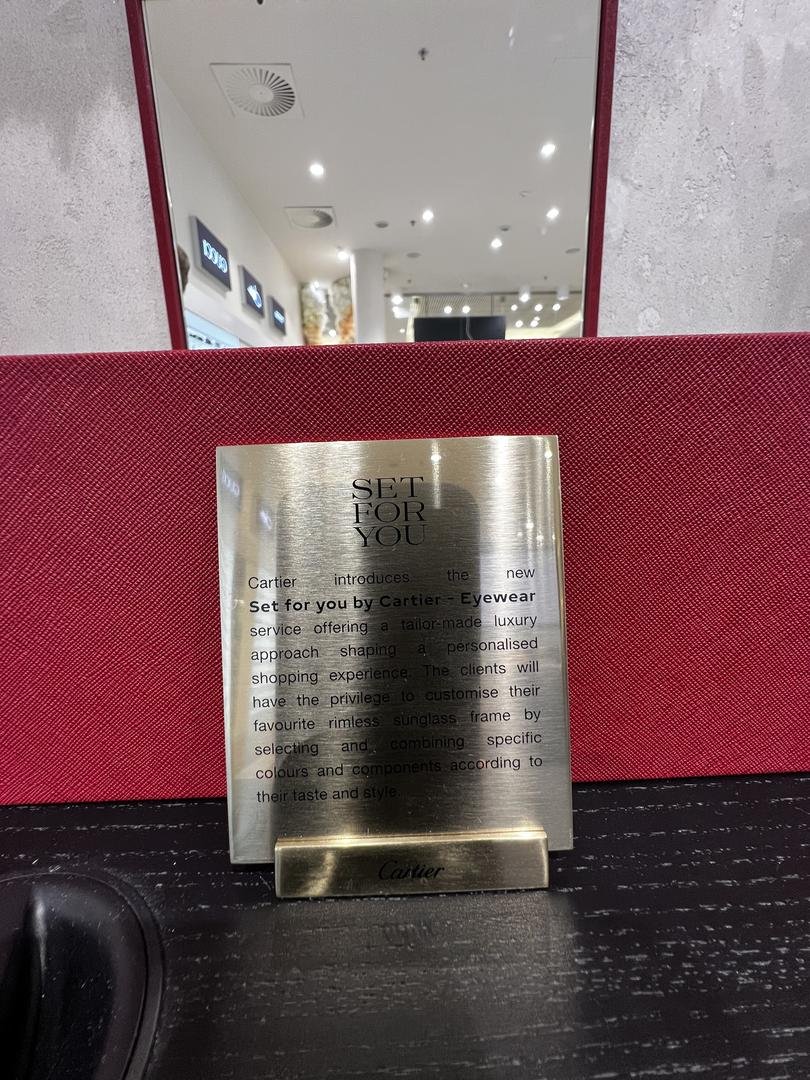 GUCCI
SET
FOR
YOU
Cartier introduces the new
Set for you by Cartier - Eyewear
service offering a tailor-made luxury
approach shaping a personalised
shopping experience. The clients will
have the privilege to customise their
favourite rimless sunglass frame by
selecting and combining specific
colours and components according to
their taste and style.
Cartier